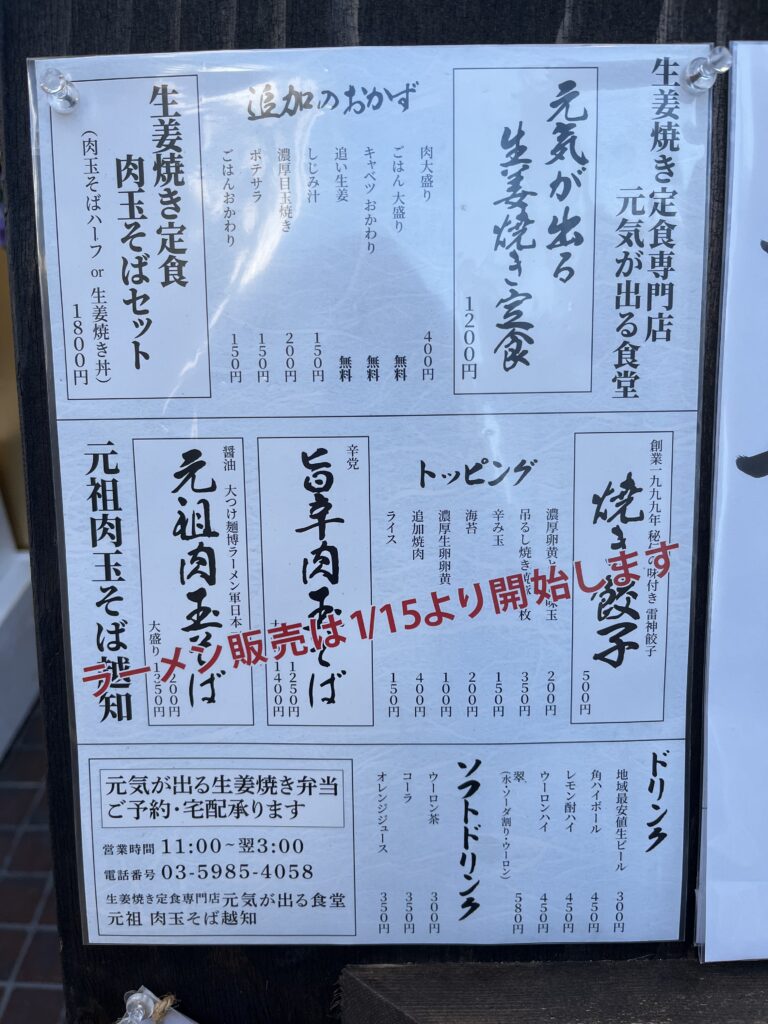 生姜焼き定食専門店
元気が出る食堂
元気が出る
生姜焼き定食
1200円
追加のおかず
肉大盛り 400円
ごはん 大盛り 無料
キャベツ おかわり 無料
追い生姜 無料
しじみ汁 150円
濃厚目玉焼き 200円
ポテサラ 150円
ごはんおかわり 150円
生姜焼き定食
肉玉そばセット
(肉玉そばハーフ or 生姜焼き丼)
1800円
創業一九九九年 秘伝の味付き 雷神餃子
焼き餃子
500円
トッピング
濃厚卵黄 味玉 200円
吊るし焼き 枚 350円
辛み玉 150円
海苔 200円
濃厚生卵卵黄 100円
追加焼肉 400円
ライス 150円
辛党
旨辛肉玉そば
1250円
1400円
醤油 大つけ麺博ラーメン軍日本一
元祖肉玉そば
200円
大盛り1350円
元祖肉玉そば越知
ラーメン販売は1/15より開始します
ドリンク
地域最安値生ビール 300円
角ハイボール 450円
レモン酎ハイ 450円
ウーロンハイ 450円
翠 580円
(水・ソーダ割り・ウーロン)
ソフトドリンク
ウーロン茶 300円
コーラ 350円
オレンジジュース 350円
元気が出る生姜焼き弁当
ご予約・宅配承ります
営業時間 11:00~翌3:00
電話番号 03-5985-4058
生姜焼き定食専門店 元気が出る食堂
元祖 肉玉そば越知